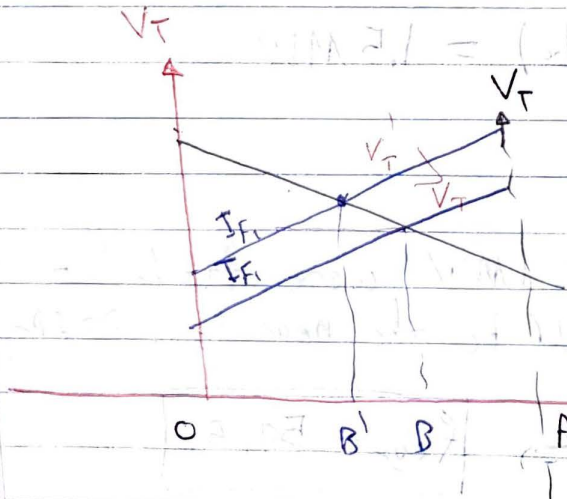 VT
VT
VT' > VT
IF1
IF1
O B' B